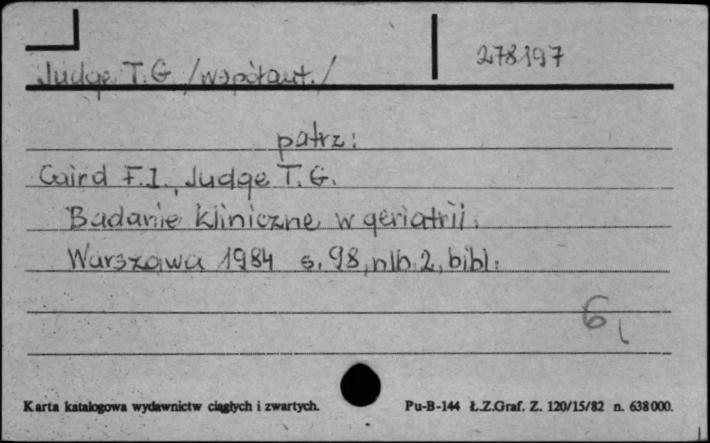 278197
Judge T.G. /współaut./
patrz:
Caird F.I., Judge T.G.
Badanie kliniczne w geriatrii.
Warszawa 1984 s. 98, nlb. 2, bibl.
6
Karta katalogowa wydawnictw ciągłych i zwartych. Pu-B-144 Ł.Z.Graf. Z. 120/15/82 n. 638000.